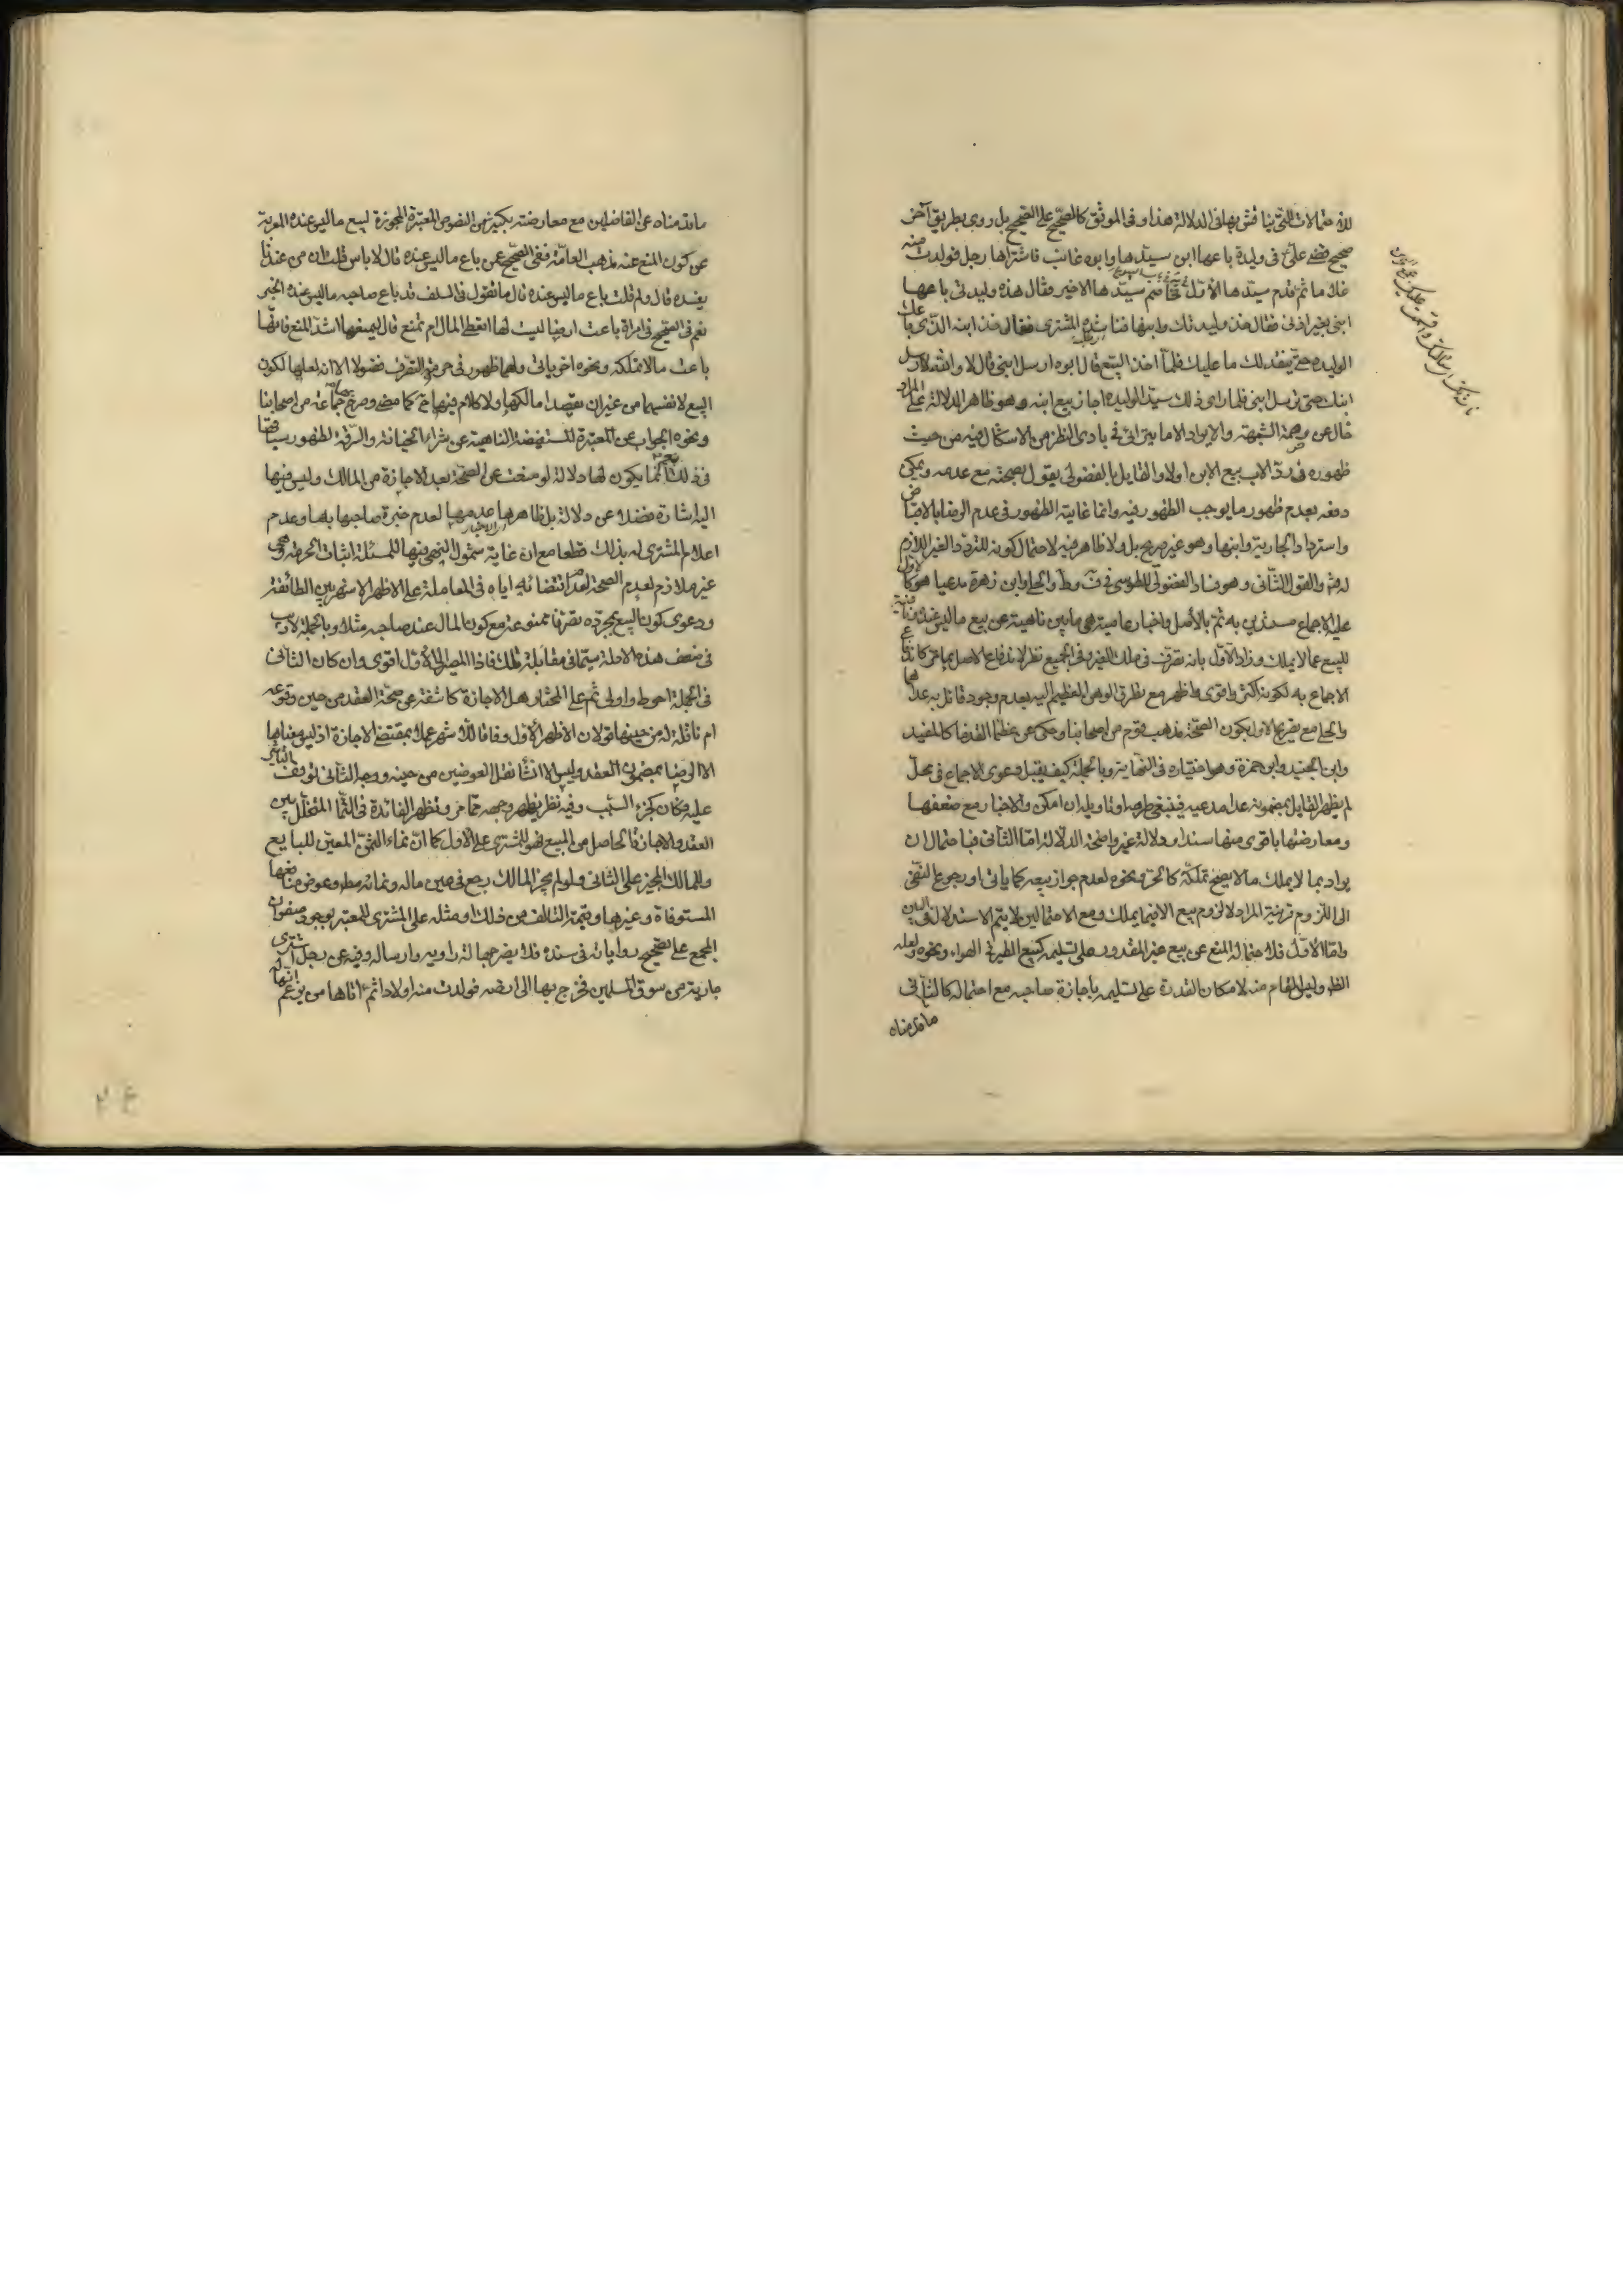 للاحتمالات التي يناقش بها في الدلالة هذا وفي الموثق كالصحيح على الصحيح بل روي بطريق آخر
صحيح قضى علي في وليدة باعها ابن سيدها وابوه غائب فاشتراها رجل فولدت منه
غلاما ثم قدم سيدها الاول فخاصم سيدها الاخير فقال هذه وليدتي باعها
ابني بغير اذني فقال خذ وليدتك وابنها فناشده المشتري فقال خذ ابنه الذي باعك
الوليده حتى ينفذ لك ما عليك فلما اخذ البيع قال ابوه ارسل ابني قال لا والله لا ارسل
ابنك حتى ترسل ابني فلما راى ذلك سيد الوليده اجاز بيع ابنه وهو ظاهر الدلالة على المراد
خال عن وصمة الشبهة والايراد الا ما يترائى في بادي النظر من الاشكال فيه من حيث
ظهوره في رد الاب بيع الابن اولا والقايل بالفضولي يقول بصحته مع عدمه ويمكن
دفعه بعدم ظهور ما يوجب الظهور فيه وانما غايته الظهور في عدم الرضا بالاقباض
واسترداد الجارية وابنها وهو غير صريح بل ولا ظاهر فيه لاحتمال كونه للتردد الغير اللازم
له والقول الثاني وهو فساد الفضولي للطوسي في ف وط والحلي وابن زهرة مدعيا هو كالاول
عليه الاجماع مستدلين به ثم بالأصل واخبار عامية هي ما بين ناهية عن بيع ما ليس عنده
للبيع عما لا يملك وزاد الاول بانه تصرف في ملك الغير وفي الجميع نظر لاندفاع الاصل بما مر كاندفاع
الاجماع به لكونه اكثر واقوى واظهر مع تطرق الوهن العظيم اليه بعدم وجود قائل به عداهما
والحلي مع تصريح الاول بكون الصحة مذهب قوم من اصحابنا وحكي عن عظماء القدماء كالمفيد
وابن الجنيد وابن حمزة وهو اختياره في النهاية وبالجملة كيف يقبل دعوى الاجماع في محل
لم يظهر القايل بمضمونه عدا مدعيه فينبغي طرحه او تاويله ان امكن والاخبار مع ضعفها
ومعارضتها باقوى منها سندا ودلالة غير واضحة الدلالة اما الثاني فباحتمال ان
يراد بما لا يملك ما لا يصح تملكه كالحر ونحوه لعدم جواز بيعه كما ياتي او رجوع النفي
الى اللزوم قرينة المراد لا لزوم بيع الا فيما يملك ومع الاحتمالين لا يتم الاستدلال في البين
واما الاول فلاحتمال المنع عن بيع غير المقدور على تسليمه كبيع الطير في الهواء ونحوه ولعله
الظ وليس المقام منه لامكان القدرة على تسليمه باجازة صاحبه مع احتماله كالثاني
ما قدمناه
ما قدمناه عن الفاضلين مع معارضته بكثير من النصوص المعتبرة المجوزة لبيع ما ليس عنده المعربة
عن كون المنع عنه مذهب العامة ففي الصحيح عن باع ما ليس عنده قال لا باس قلت ان من عندنا
يفسده قال ولم قلت باع ما ليس عنده قال ما تقول في السلف قد باع صاحبه ما ليس عنده الخبر
نعم في الصحيح في امراة باعت ارضا ليست لها اتعطي المال ام تمنع قال ليمنعها اشد المنع فانها
باعت ما لا تملكه ونحوه اخر ياتي ولهما ظهور في حرمة التصرف فضولا الا انه لعلها لكون
البيع لانفسهما من غير ان يقصدا مالكها ولا كلام فيها ح كما مضى وصرح به جماعة من اصحابنا
ونحوه الجواب عن المعتبرة المستفيضة الناهية عن شراء الخيانة والسرقة لظهور سياقها
في ذلك مع انما يكون لها دلالة لو منعت عن الصحة بعد الاجازة من المالك وليس فيها
اليه اشارة فضلا عن دلالة بل ظاهرها عدمها لعدم خبرة صاحبها بها وعدم
اعلام المشتري له بذلك قطعا مع ان غاية شمول النهي فيها للمسئلة اثبات الحرمة وهي
غير ملازم لعدم الصحة لعدم اقتضائه اياه في المعاملة على الاظهر الاشهر بين الطائفة
ودعوى كون البيع بمجرده تصرفا ممنوعة مع كون المال عند صاحبه مثلا وبالجملة لا ريب
في ضعف هذه الادلة سيما في مقابلة تلك فاذا المصير الى الاول اقوى وان كان الثاني
في الجملة احوط واولى ثم على المختار هل الاجازة كاشفة عن صحة العقد من حين وقوعه
ام ناقلة له من حينها قولان الاظهر الاول وفاقا للاشهر عملا بمقتضى الاجازة اذ ليس معناها
الا الرضا بمضمون العقد وليس الا انشاء نقل العوضين من حينه ووجه الثاني توقف التاثير
عليه فكان كجزء السبب وفيه نظر يظهر وجهه مما مر وتظهر الفائدة في النماء المتخلل بين
العقد والاجازة الحاصل من المبيع فهو للمشتري على الاول كما ان نماء الثمن المعين للبايع
وللمالك المجيز على الثاني ولو لم يجز المالك رجع في عين ماله ونمائه مط وعوض منافعها
المستوفاة وغيرها وقيمة التالف من ذلك او مثله على المشتري للمعتبر بوجود صفوان
المجمع على تصحيح رواياته في سنده فلا يضر جهالة راويه وارساله وفيه عن رجل اشترى
جارية من سوق المسلمين فخرج بها الى ارضه فولدت منه اولادا ثم اتاها من يزعم انها له